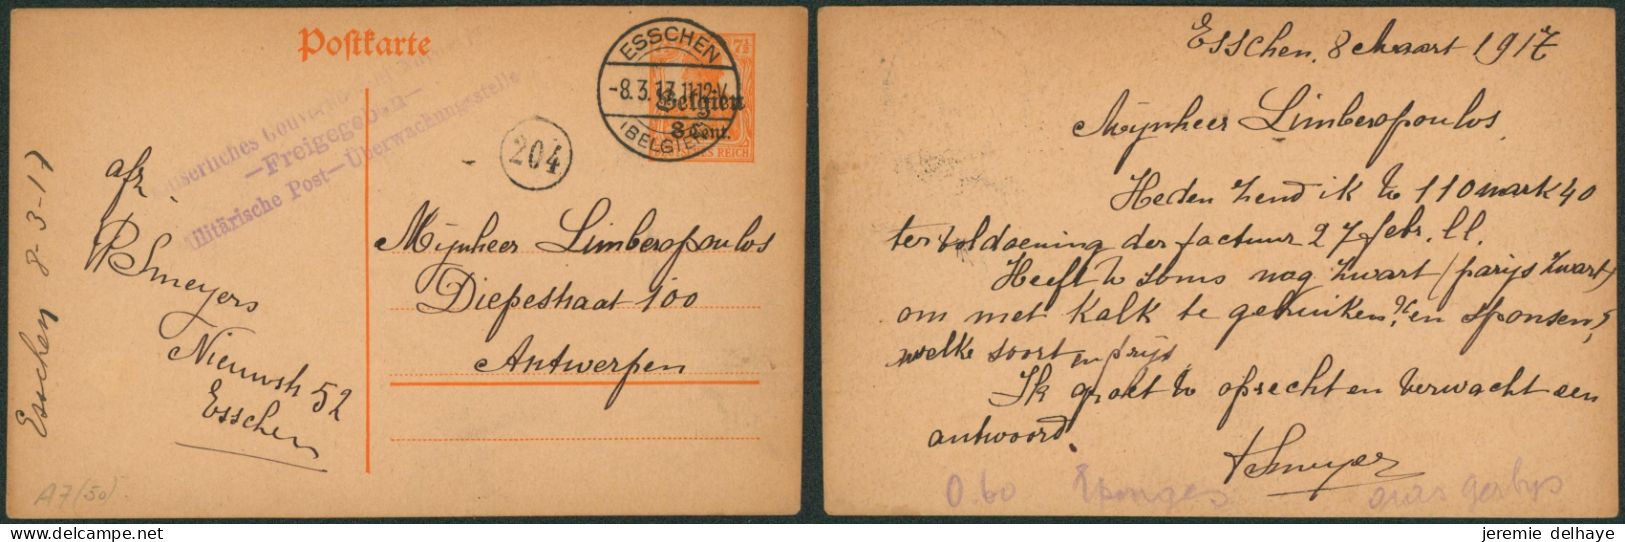 Postkarte
7½
ESSCHEN
-8.3.17.11-12.V.
(BELGIEN)
Belgien
8 Cent.
DEUTSCHES REICH
204
Kaiserliches Gouvernement
—Freigegeben—
Militärische Post—Überwachungsstelle
afz.
Smeyers
Nieuwstr 52
Esschen
Esschen 8-3-17
Mijnheer Limberopoulos
Diepestraat 100
Antwerpen
A7(50).
Esschen, 8 Maart 1917
Mijnheer Limberopoulos,
Heden zend ik U 110 mark 40
ter voldoening der factuur 27 febr. ll.
Heeft U soms nog zwart (parijs zwart)
om met kalk te gebruiken? en sponsen,
welke soort en prijs
Ik groet U oprecht en verwacht een
antwoord.
Smeyers
0.60 Eponges
jeremie delhaye